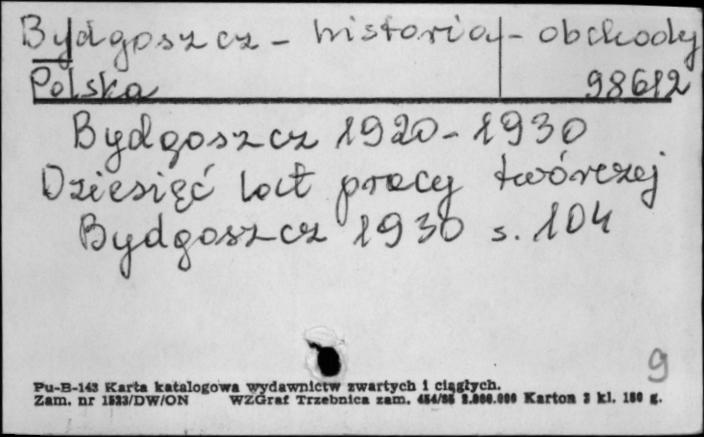 Bydgoszcz - historia - obchody
Polska 98612
Bydgoszcz 1920-1930
Dziesięć lat pracy twórczej
Bydgoszcz 1930 s. 104
9
Pu-B-143 Karta katalogowa wydawnictw zwartych i ciągłych.
Zam. nr 1533/DW/ON WZGraf Trzebnica zam. Karton 3 kl. 180 g.